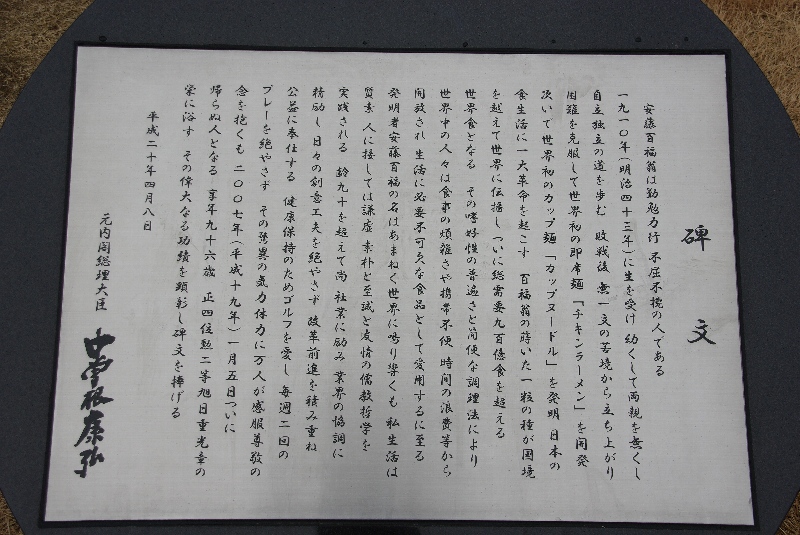 碑文
安藤百福翁は勤勉力行 不屈不撓の人である
一九一〇年(明治四十三年)に生を受け 幼くして両親を無くし
自立独立の道を歩む 敗戦後 無一文の苦境から立ち上がり
困難を克服して世界初の即席麺「チキンラーメン」を開発
次いで世界初のカップ麺「カップヌードル」を発明 日本の
食生活に一大革命を起こす 百福翁の蒔いた一粒の種が国境
を越えて世界に伝播し ついに総需要九百億食を超える
世界食となる その嗜好性の普遍さと簡便な調理法により
世界中の人々は食事の煩雑さや携帯不便 時間の浪費等から
開放され 生活に必要不可欠な食品として愛用するに至る
発明者安藤百福の名はあまねく世界に鳴り響くも 私生活は
質素 人に接しては謙虚 素朴と至誠と友情の儒教哲学を
実践される 齢九十を超えて尚 社業に励み 業界の協調に
精励し 日々の創意工夫を絶やさず 改革前進を積み重ね
公益に奉仕する 健康保持のためゴルフを愛し 毎週二回の
プレーを絶やさず その驚異の気力体力に万人が感服尊敬の
念を抱くも 二〇〇七年(平成十九年)一月五日ついに
帰らぬ人となる 享年九十六歳 正四位勲二等旭日重光章の
栄に浴す その偉大なる功績を顕彰し碑文を捧げる
平成二十年四月八日
元内閣総理大臣
中曽根康弘